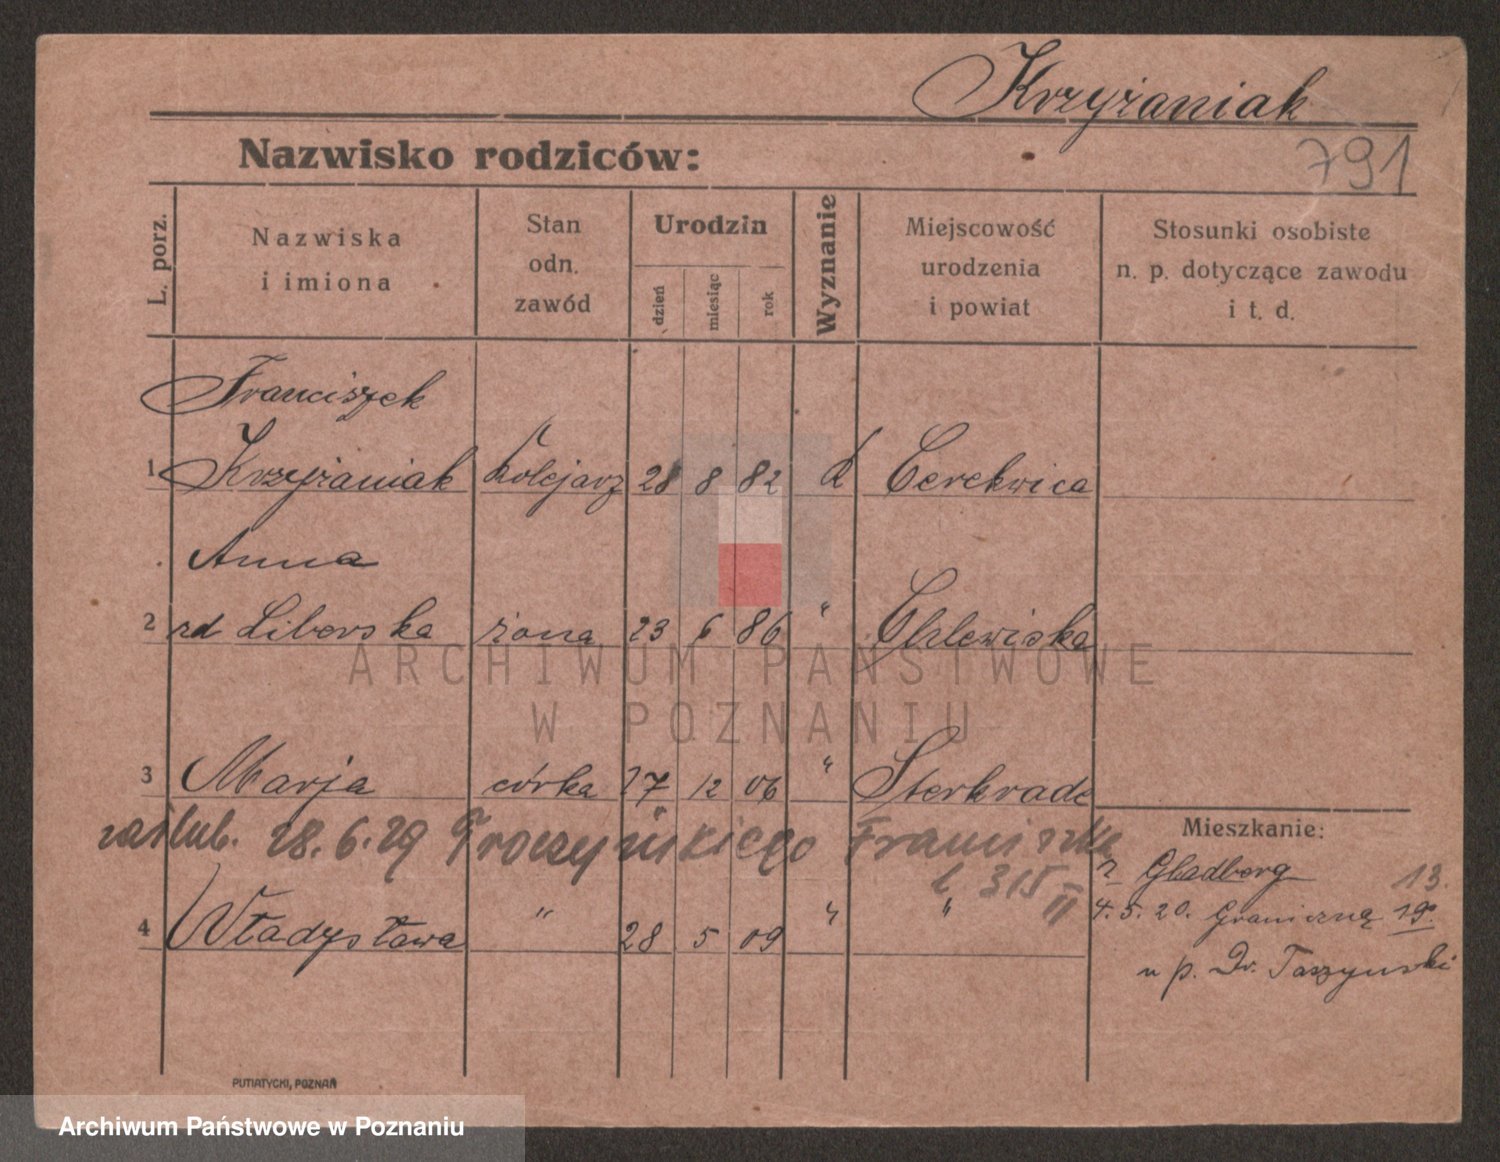 Krzyżaniak
791
Nazwisko rodziców:
L. porz.
Nazwiska
i imiona
Stan
odn.
zawód
Urodzin
dzień
miesiąc
rok
Wyznanie
Miejscowość
urodzenia
i powiat
Stosunki osobiste
n. p. dotyczące zawodu
i t. d.
Franciszek
1 Krzyżaniak kolejarz 28 8 82 k Cerekwica
Anna
2 rd Liberska żona 23 6 86 " Chlewiska
ARCHIWUM PAŃSTWOWE
W POZNANIU
3 Marja córka 27 12 06 " Sterkrade
zaślub. 28.6.29 Troczyńskiego Franciszka
l. 315 II
Mieszkanie:
z Gladberg 13.
4 Władysława " 28 5 09 " "
4.5.20. Graniczną 19
u p. Dr. Taszynski
PUTIATYCKI, POZNAŃ
Archiwum Państwowe w Poznaniu